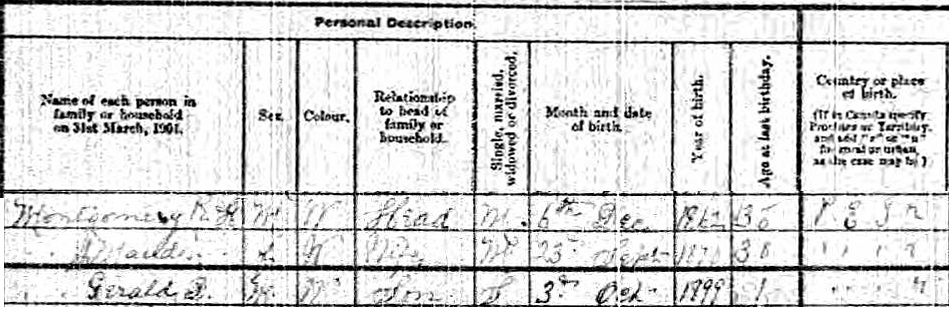 Personal Description.
Name of each person in family or household on 31st March, 1901.
Sex.
Colour.
Relationship to head of family or household.
Single, married, widowed or divorced.
Month and date of birth.
Year of birth.
Age at last birthday.
Country or place of birth.
(If in Canada specify Province or Territory, and add "r" or "u" for rural or urban, as the case may be.)
Montgomery M. W Head M. 6th Dec. P E I r
W Wife M 23 Sept
Gerald W Son S 3rd Oct 1899 1